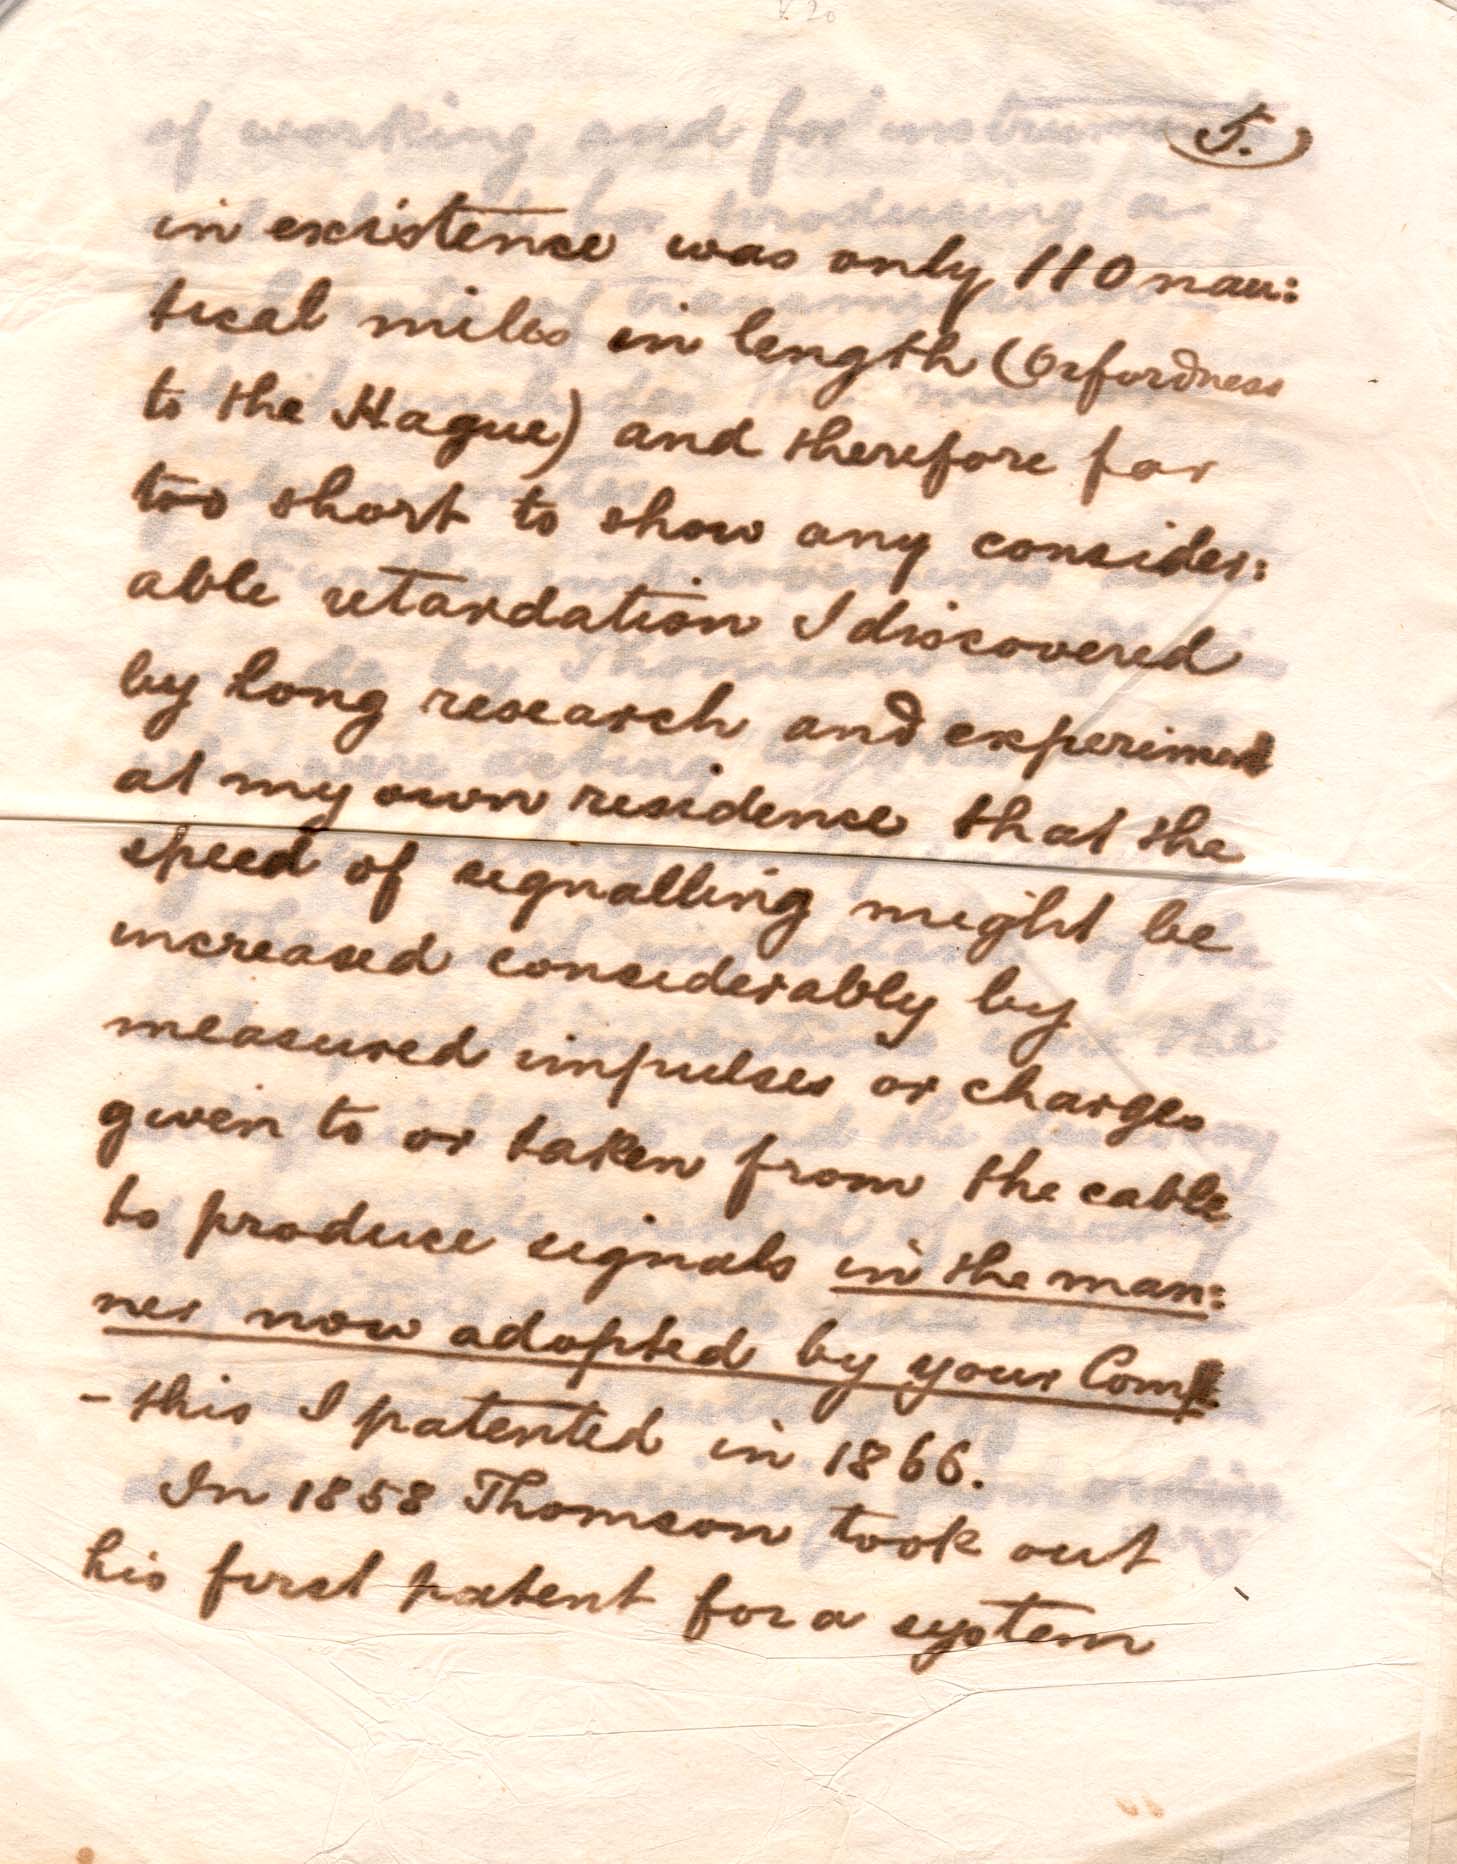 5.
in existence was only 110 nau:
tical miles in length (Orfordness
to the Hague) and therefore far
too short to show any consider:
able retardation I discovered
by long research and experiment
at my own residence that the
speed of signalling might be
increased considerably by
measured impulses or charges
given to or taken from the cable
to produce signals in the man:
ner now adopted by your Comp
- this I patented in 1866.
In 1858 Thomson took out
his first patent for a system